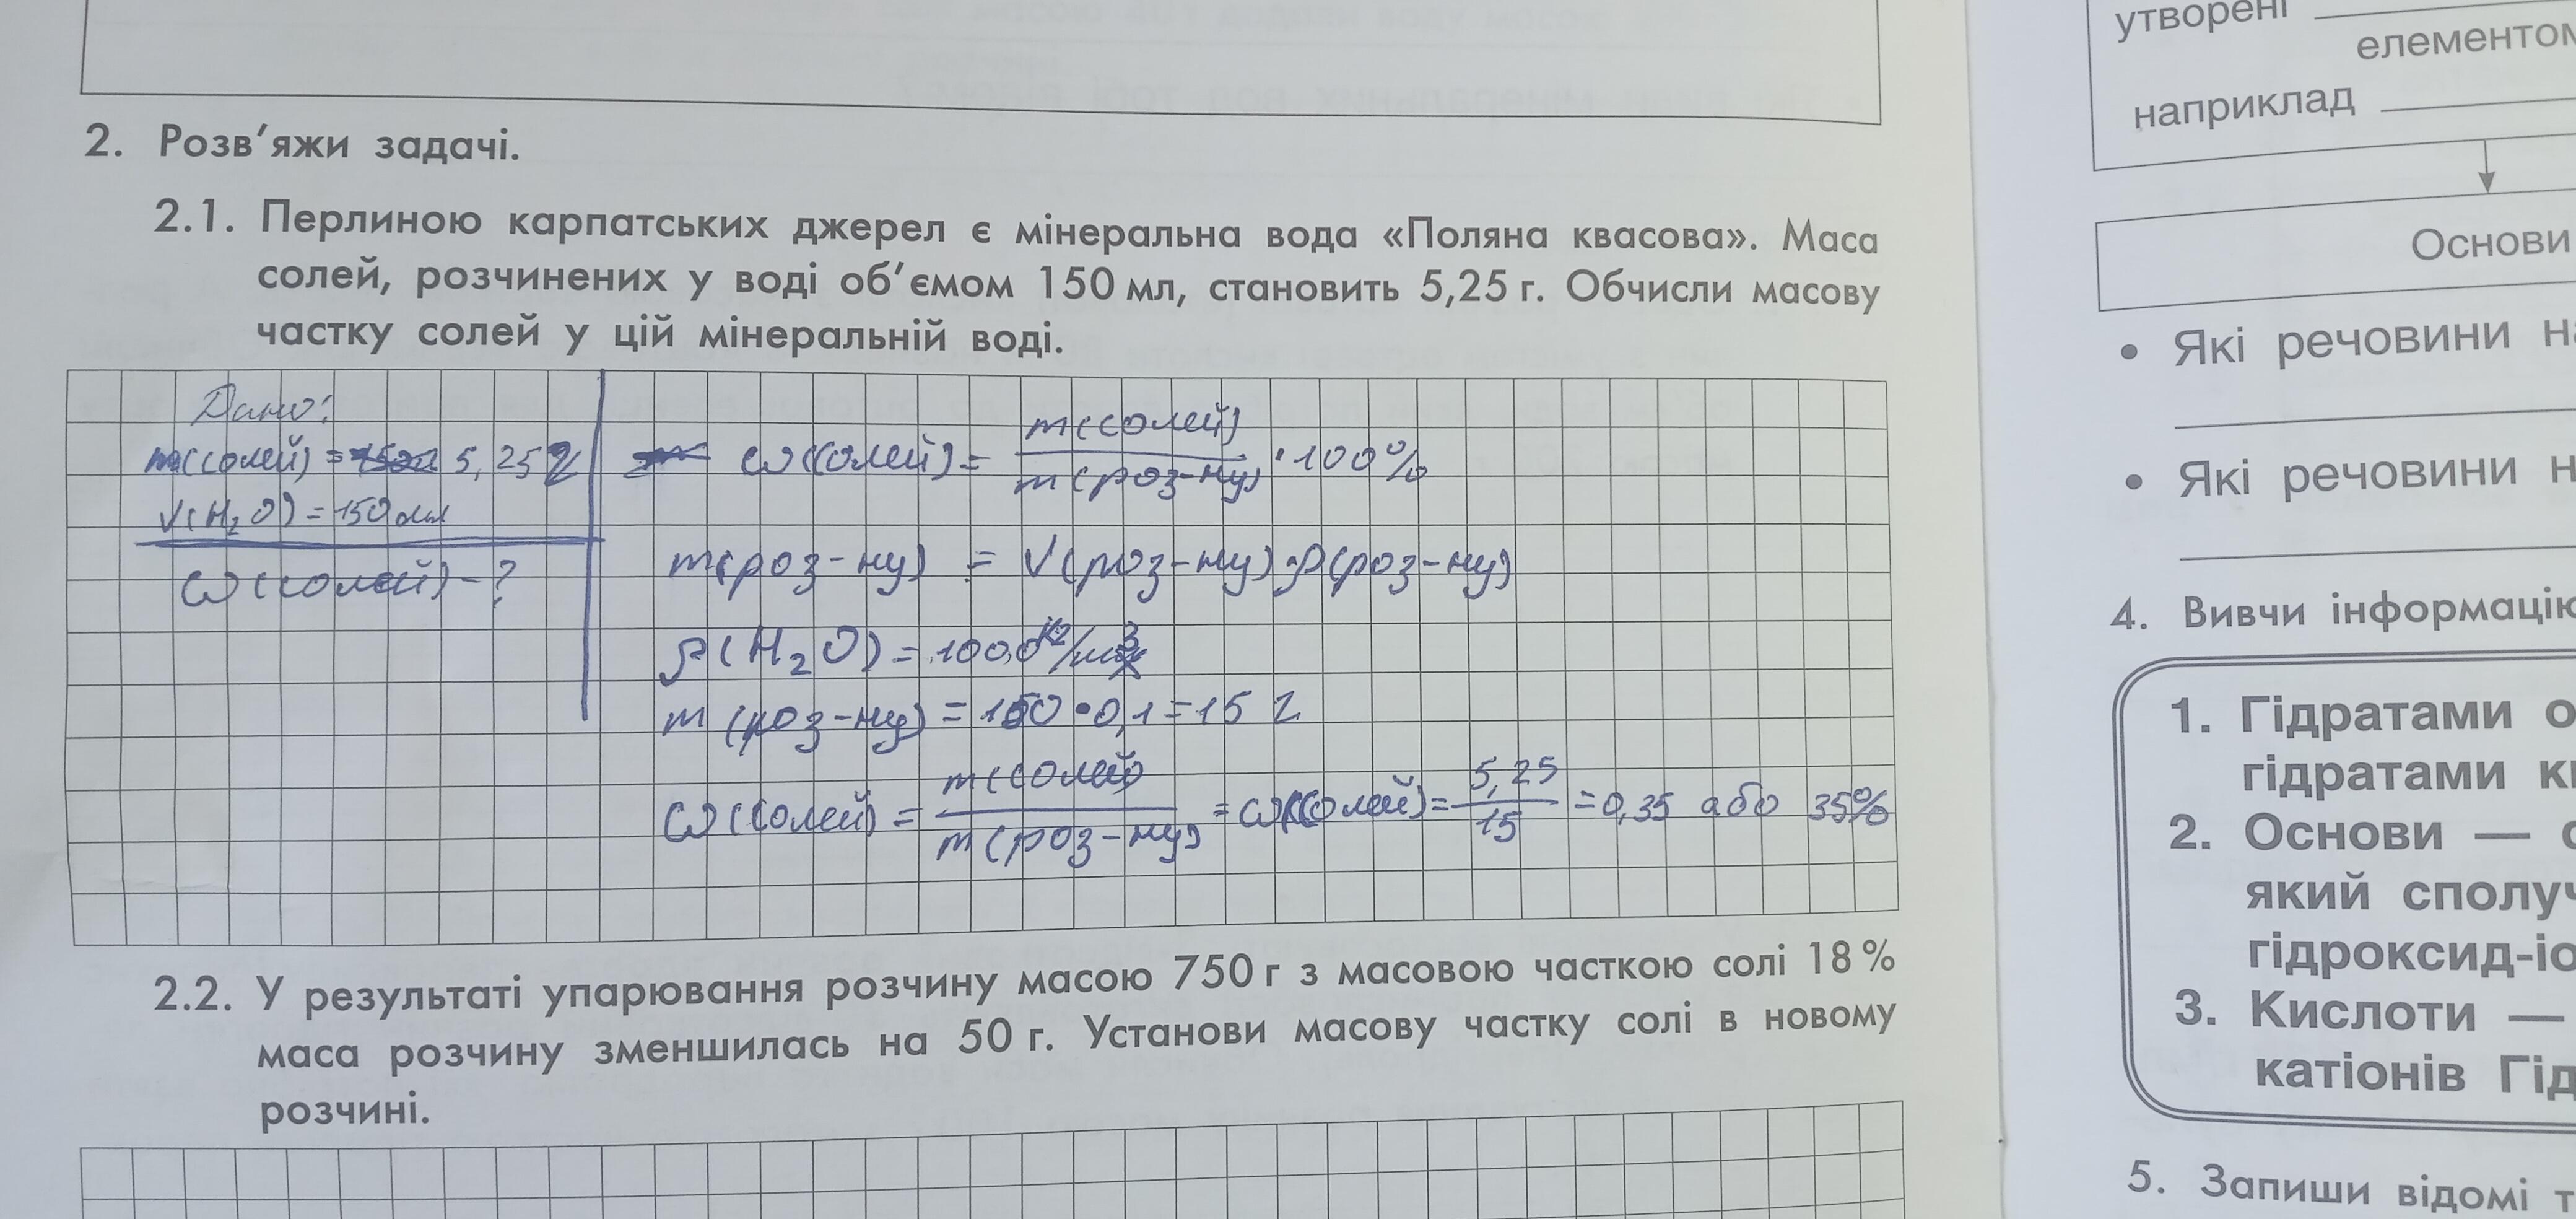 2. Розв’яжи задачі.
2.1. Перлиною карпатських джерел є мінеральна вода «Поляна квасова». Маса
солей, розчинених у воді об’ємом 150 мл, становить 5,25 г. Обчисли масову
частку солей у цій мінеральній воді.
Дано:
m(солей) = 5,25 г
V(H₂O) = 150 мл
ω(солей) - ?
ω(солей) = m(солей) / m(роз-ну) · 100%
m(роз-ну) = V(роз-ну) · ρ(роз-ну)
ρ(H₂O) = 1000 кг/м³
m(роз-ну) = 150 · 0,1 = 15 г
ω(солей) = m(солей) / m(роз-ну) = ω(солей) = 5,25 / 15 = 0,35 або 35%
2.2. У результаті упарювання розчину масою 750 г з масовою часткою солі 18 %
маса розчину зменшилась на 50 г. Установи масову частку солі в новому
розчині.
утворені
елементом
наприклад
Основи
• Які речовини
• Які речовини
4. Вивчи інформацію
1. Гідратами
гідратами
2. Основи —
який
гідроксид-іо
3. Кислоти —
катіонів Гід
5. Запиши відомі